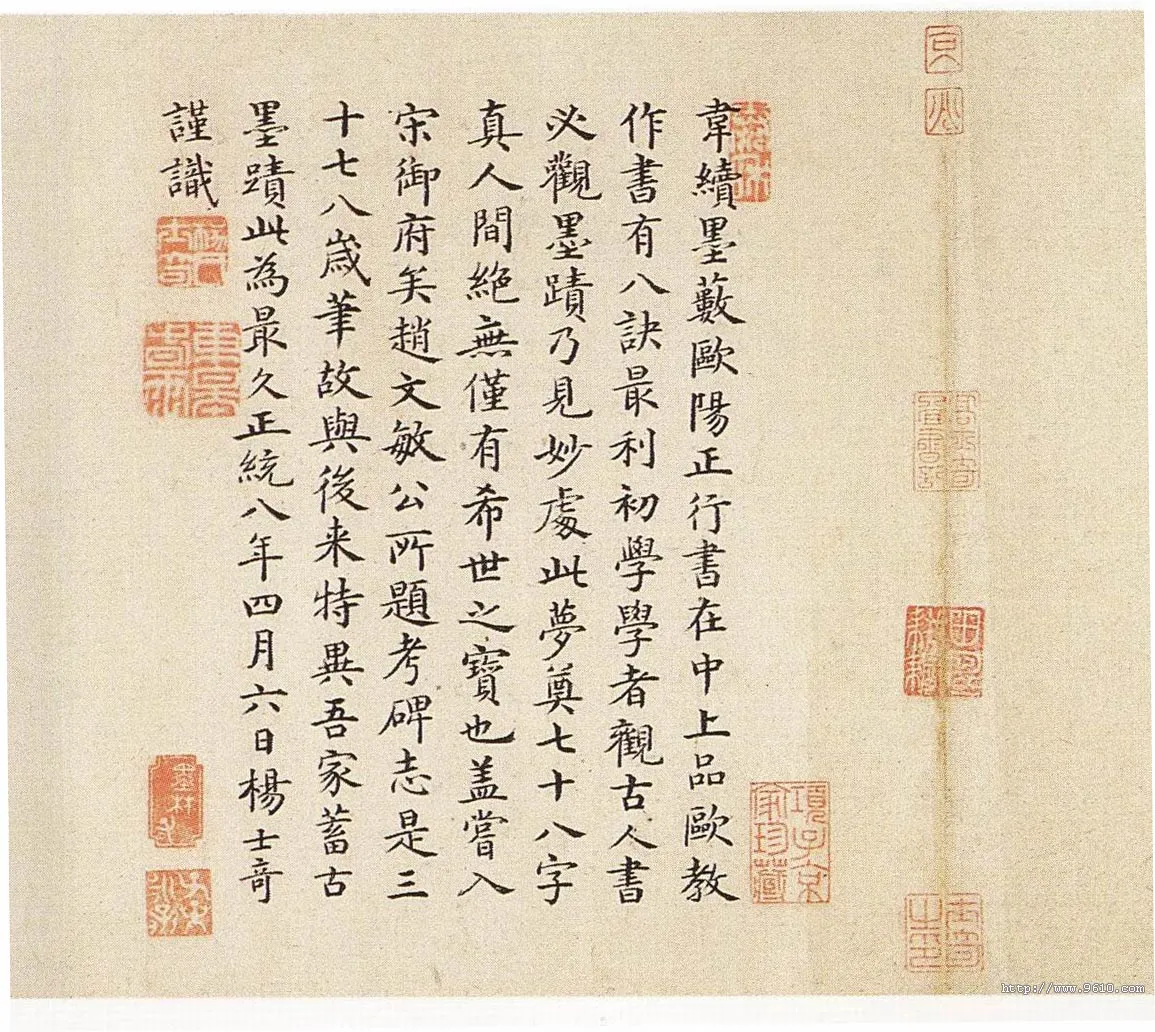 韋續墨藪歐陽正行書在中上品歐教
作書有八訣最利初學學者觀古人書
必觀墨蹟乃見妙處此夢奠七十八字
真人間絶無僅有希世之寶也盖嘗入
宋御府矣趙文敏公所題考碑志是三
十七八歲筆故與後来特異吾家蓄古
墨蹟此為最久正統八年四月六日楊士奇
謹識
項子京
家珍藏
http://www.9610.com